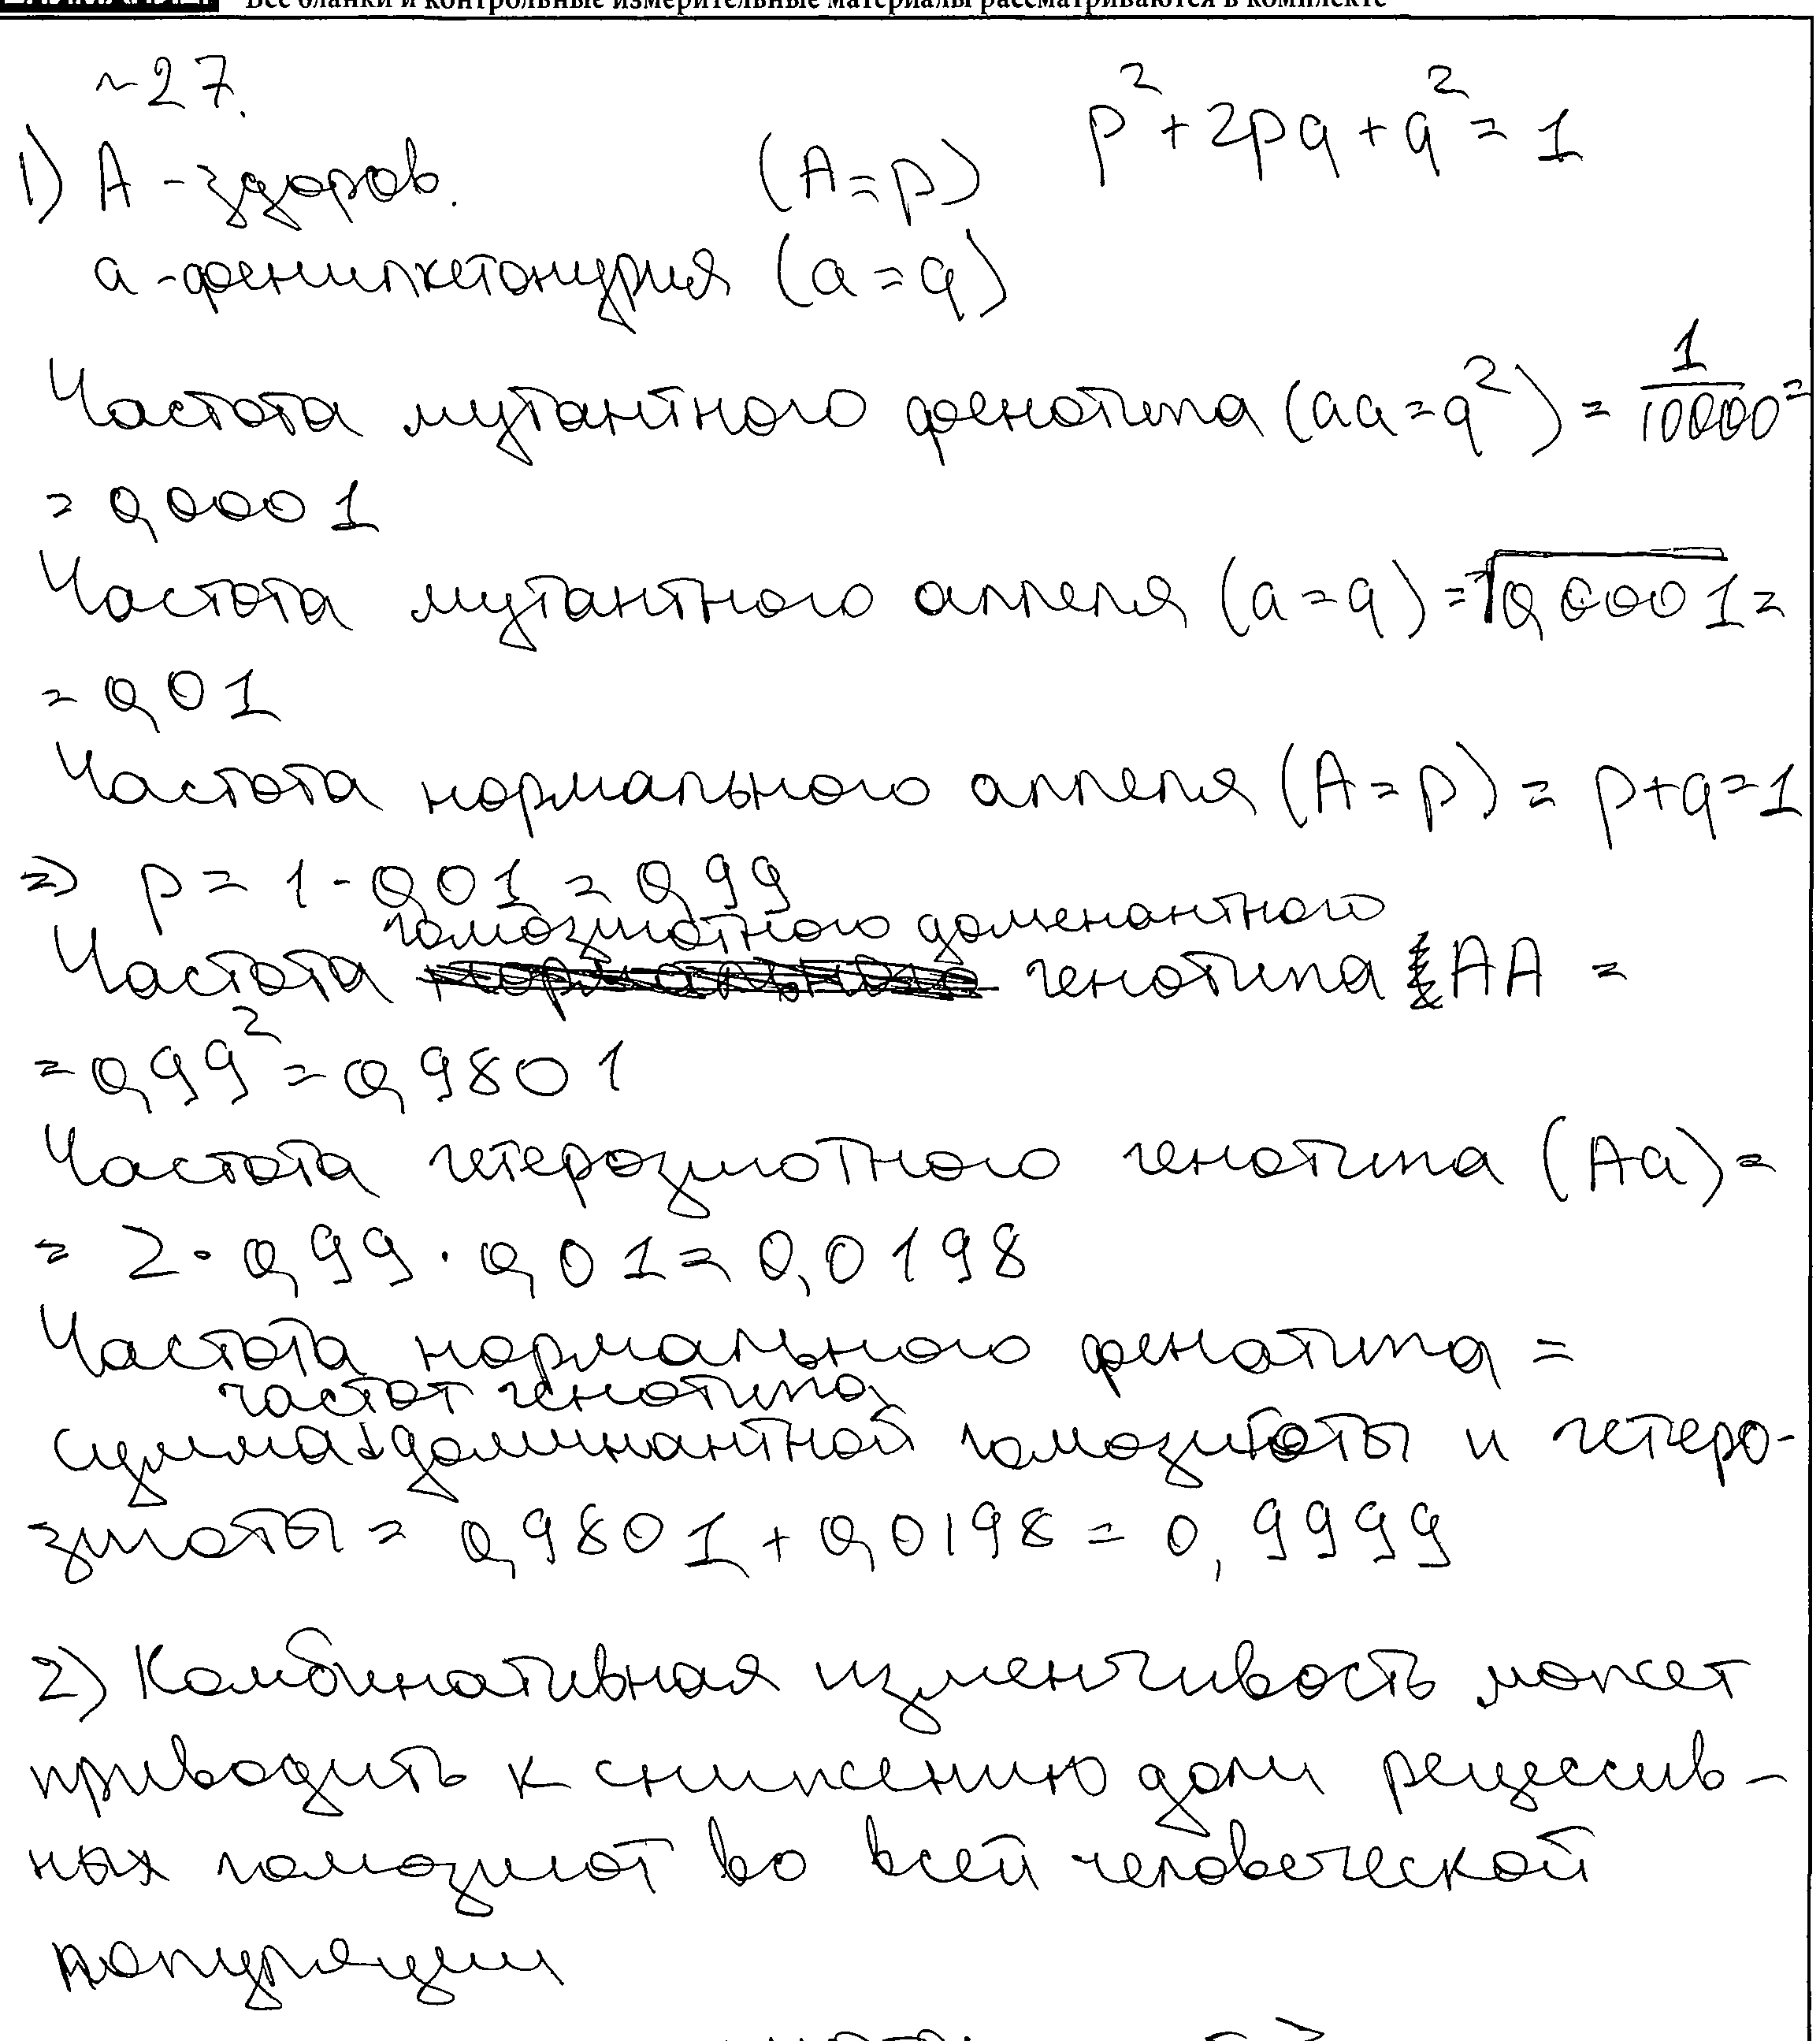 Все бланки и контрольные измерительные материалы рассматриваются в комплекте
~27.
p²+2pq+q²=1
1) А - здоров. (А=p)
а - фенилкетонурия (а=q)
Частота мутантного фенотипа (аа=q²) = 1/10000 =
= 0,0001
Частота мутантного аллеля (а=q) = √0,0001 =
= 0,01
Частота нормального аллеля (А=p) = p+q=1
=> p = 1 - 0,01 = 0,99
гомозиготного доменантного
Частота генотипа АА =
= 0,99² = 0,9801
Частота гетерозиготного генотипа (Аа) =
= 2 · 0,99 · 0,01 = 0,0198
Частота нормального фенотипа =
частот генотипа
сумма доминантной гомозиготы и гетеро-
зиготы = 0,9801 + 0,0198 = 0,9999
2) Комбинативная изменчивость может
приводить к снижению доли рецессив-
ных гомозигот во всей человеческой
популяции